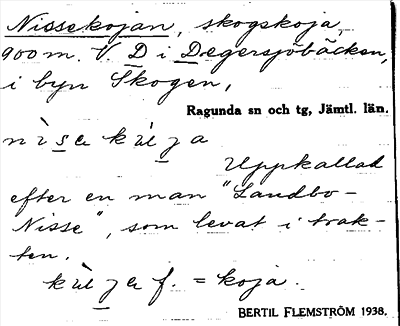 Nissekojan, skogskoja,
900 m. V. D i Degersjöbäcken,
i byn Skogen,
Ragunda sn och tg, Jämtl. län.
Uppkallad
efter en man "Landbo-
Nisse", som levat i trak-
ten.
f. = koja.
BERTIL FLEMSTRÖM 1938.